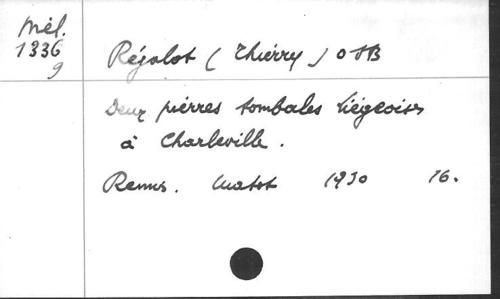 Mél.
1336
9
Réjalot (Thierry) OSB
Deux pierres tombales liégeoises
à Charleville.
Reims. Matot 1930 16.